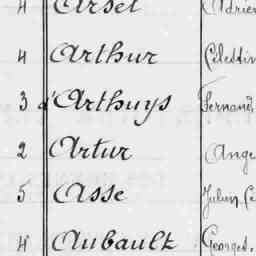 4 Arsel Adrien
4 Arthur Célestin
3 d'Arthuys Fernand
2 Artur Ange
5 Asse Julien Cé
4 Aubault Georges.